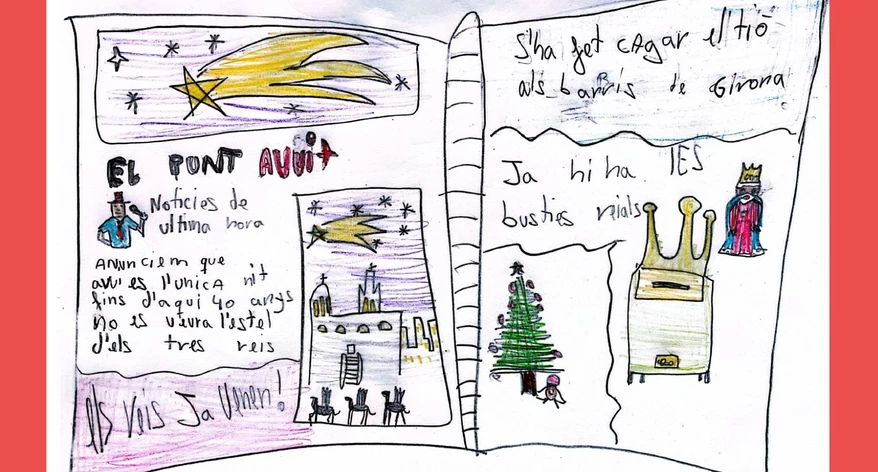 EL PUNT AVUI+
Noticies de
ultima hora
Anunciem que
avui es l'unica nit
fins d'aqui 40 anys
no es viura l'estel
d'els tres reis
Els reis Ja venen!
S'ha fet cagar el tió
als barris de Girona
Ja hi ha les
busties reials